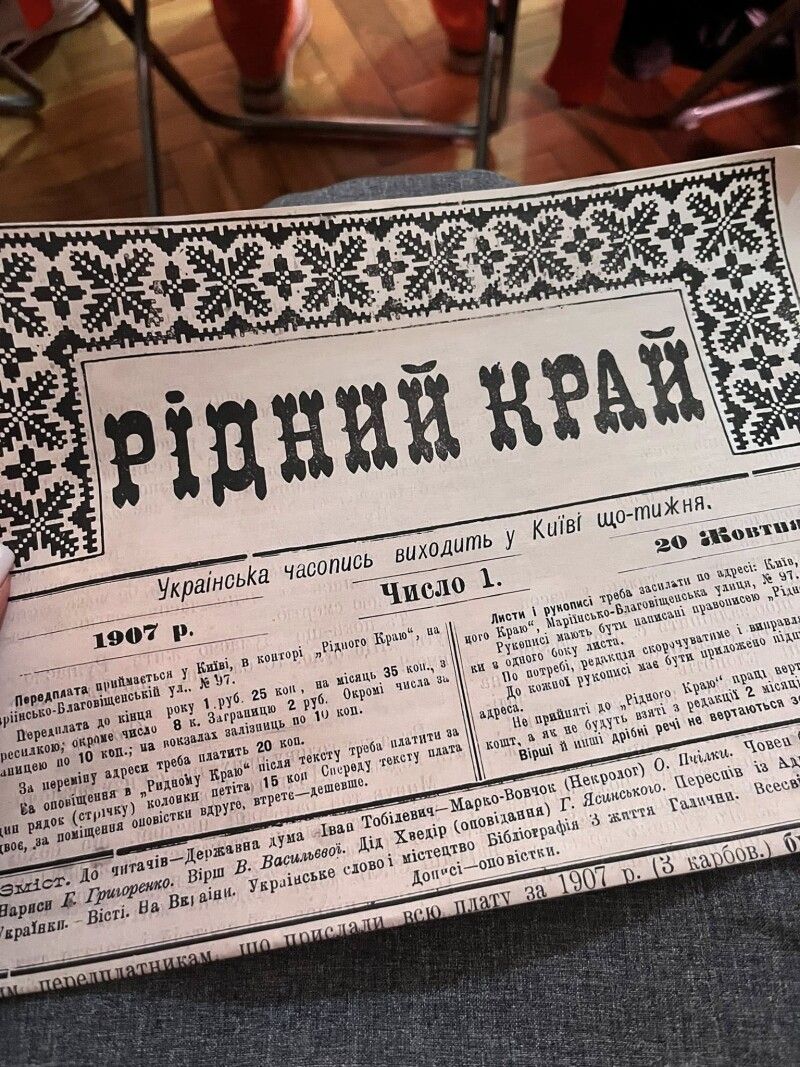 РІДНИЙ КРАЙ
Українська часопись виходить у Київі що-тижня.
1907 р.
Число 1.
20 Жовтня
Передплата приймається у Київі, в конторі „Рідного Краю“, на
Маріїнсько-Благовіщенській ул.. № 97.
Передплата до кінця року 1 руб. 25 коп , на місяць 35 коп., з
пересилкою; окроме число 8 к. Заграницю 2 руб. Окромі числа за
аницею по 10 коп.; на вокзалах залізниць по 10 коп.
За переміну адреси треба платить 20 коп.
За оповіщення в „Ридному Краю“ після тексту треба платити за
дин рядок (стрічку) колонки петіта 15 коп Спереду тексту плата
двоє, за поміщення оповістки вдруге, втретє—дешевше.
Листи і рукописі треба засилати по адресі: Київ,
ного Краю“, Маріїнсько-Благовіщенська улиця, № 97.
Рукописі мають бути написані правописею „Рідн
ки з одного боку листа.
По потребі, редакція скорочуватиме і виправля
До кожної рукописі має бути приложено підп
адреса.
Не прийняті до „Рідного Краю“ праці верт
кошт, а як не будуть взяті з редакції 2 місяці
Вірші й инші дрібні речі не вертаються з
Зміст. До читачів—Державна дума Іван Тобілевич—Марко-Вовчок (Некролог) О. Пчілки. Човен
Нариси Г. Григоренко. Вірш В. Васильєвої. Дід Хведір (оповідання) Г. Ясинського. Переспів із Ад
Українки. - Вісті. На Вкраіни. Українське слово і містецтво Бібліографія З життя Галичини. Всесві
Дописі—оповістки.
передплатникам, що прислали всю плату за 1907 р. (3 карбов.)